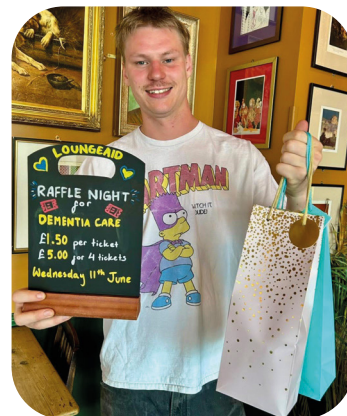 LOUNGEAID
RAFFLE NIGHT
for
DEMENTIA CARE
£1.50 per ticket
£5.00 for 4 tickets
Wednesday 11th June
BARTMAN
WATCH IT,
DUDE!